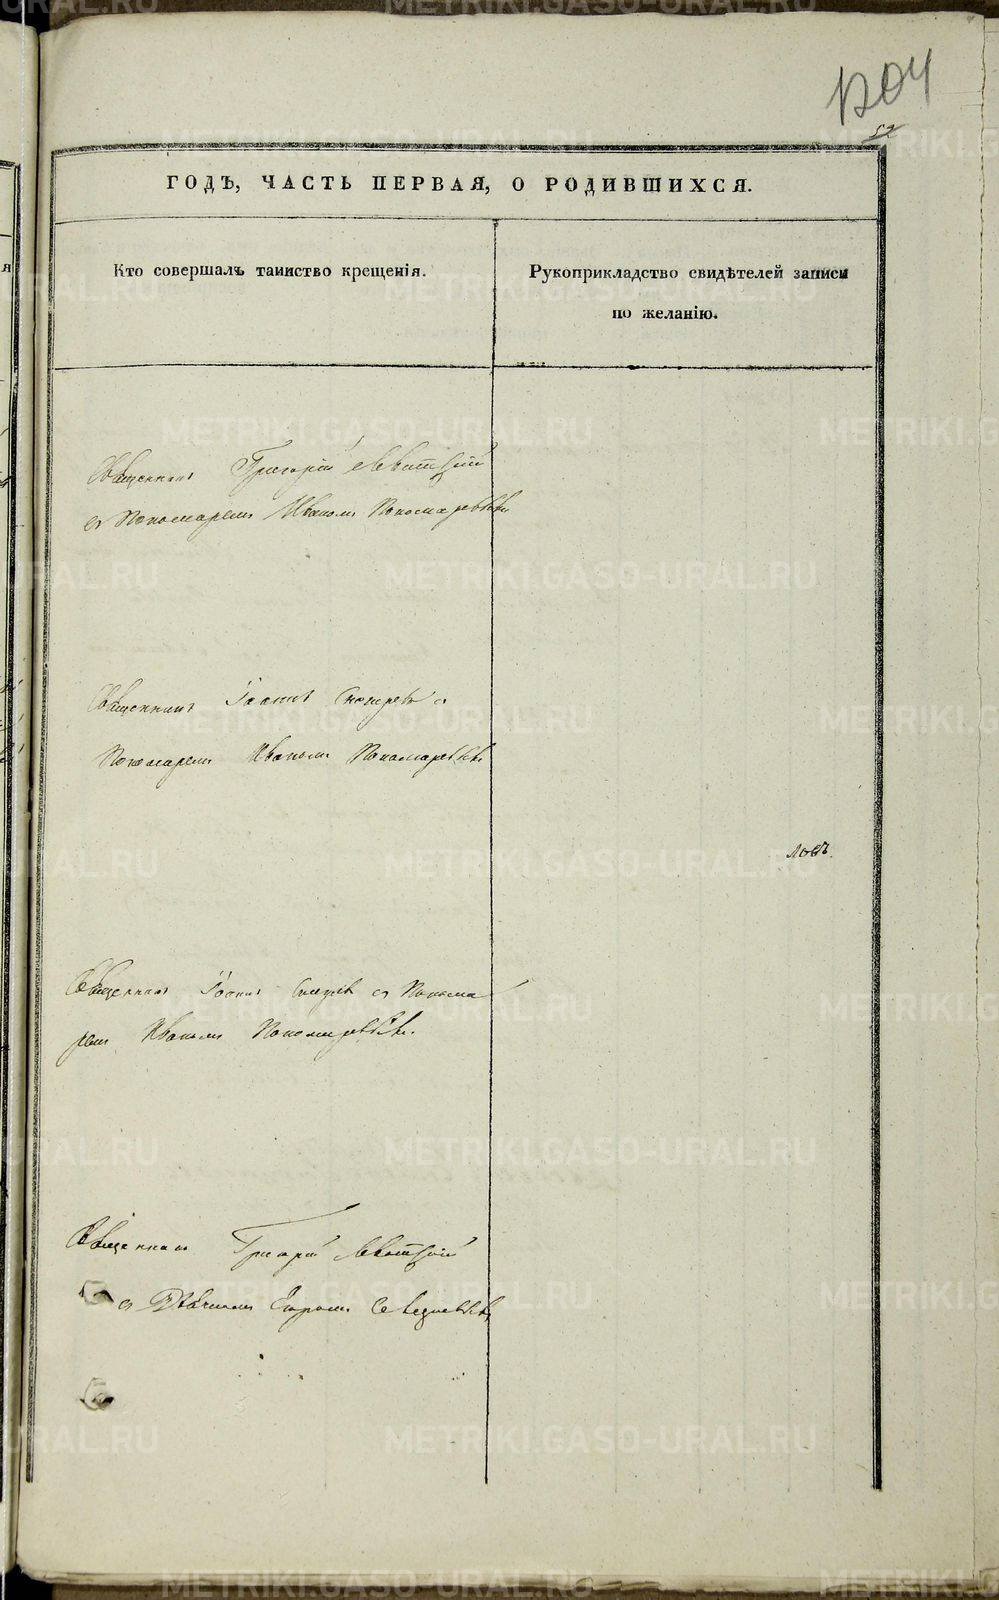 1204
52
ГОДЪ, ЧАСТЬ ПЕРВАЯ, О РОДИВШИХСЯ.
Кто совершалъ таинство крещенія.
Рукоприкладство свидѣтелей записи
по желанію.
Священникъ Григорій Левитскій
съ Пономаремъ Иваномъ Пономаревымъ
Священникъ Іоаннъ с
Пономаремъ Иваномъ Пономаревымъ
ловъ.
Священникъ Іоаннъ съ Понома
ремъ Иваномъ Пономаревымъ.
Священникъ Григорій Левитскій
съ Дьячкомъ
METRIKI.GASO-URAL.RU